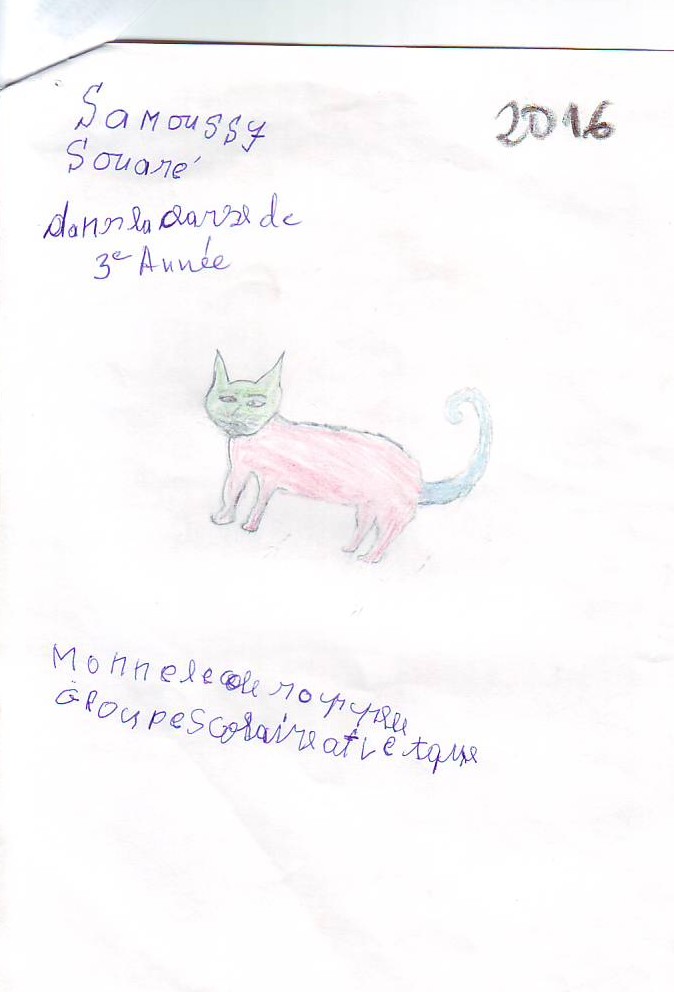 Samoussy
2016
Souaré
dans la classe de
3e Année
Monnelecole
Groupescolaireatietique